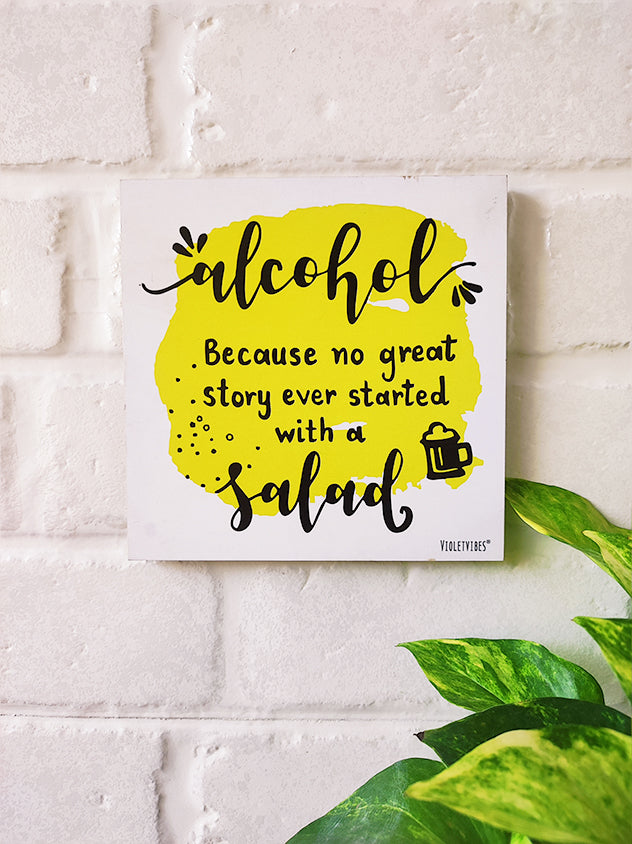 alcohol
Because no great
story ever started
with a
salad
VIOLETVIBES®